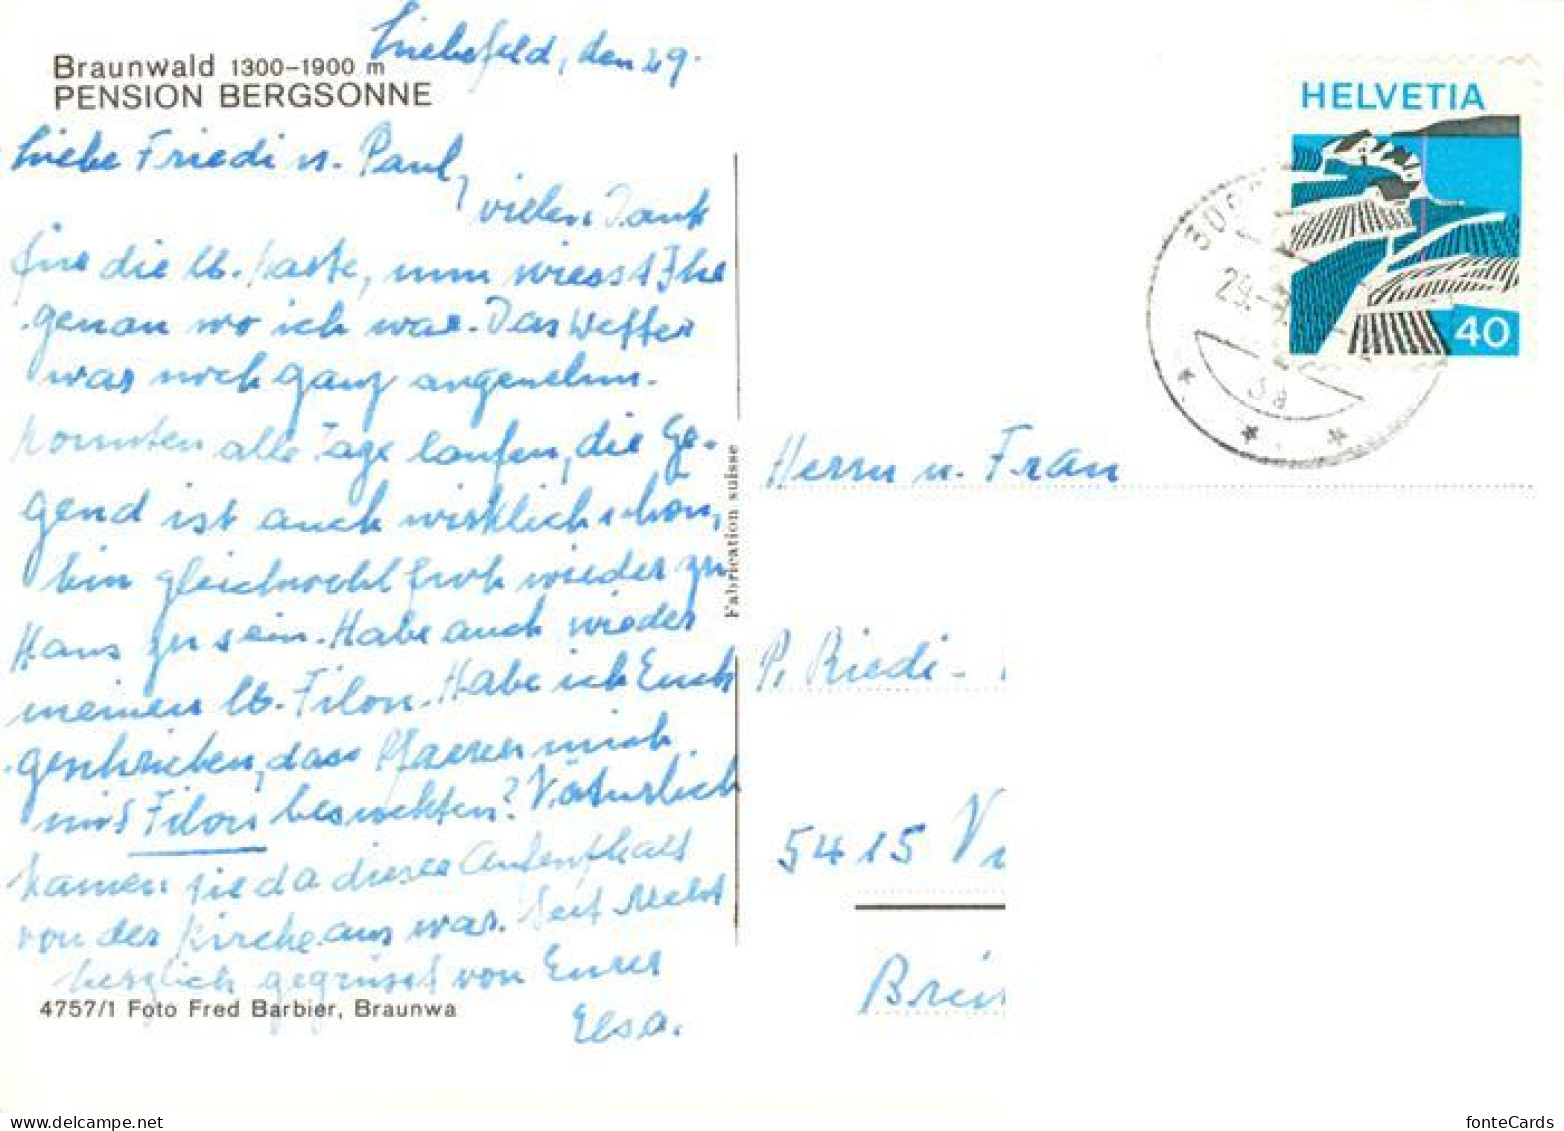 Liebefeld, den 29.
Braunwald 1300-1900 m
PENSION BERGSONNE
Liebe Friedi u. Paul,
vielen Dank
für die lb. Karte, nun wiesst Ihr
genau wo ich war. Das Wetter
war noch ganz angenehm.
Konnten alle Tage laufen, die Ge-
gend ist auch wirklich schön,
bin gleichwohl froh wieder zu
Haus zu sein. Habe auch wieder
meinen lb. Filou. Habe ich Euch
geschrieben, dass Pfarrers mich
mit Filou besuchten? Natürlich
kamen sie da dieser Aufenthalt
von der Kirche aus war. Seit recht
herzlich gegrüsst von Eurer
Elsa.
4757/1 Foto Fred Barbier, Braunwa
Fabrication suisse
HELVETIA
40
29.
3a
Herrn u. Frau
P. Riedi-
5415